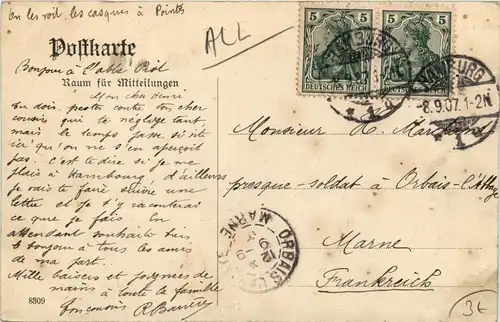 On les voit les casques à Pointes
ALL
Postkarte
Bonjour à l'abbé
Raum für Mitteilungen
Mon cher Henri
Tu dois pester contre ton cher
cousin qui te néglige tant
mais le temps passe si vite
ici qu'on ne s'en aperçoit
pas. C'est te dire si je me
plais à Hambourg d'ailleurs
je vais te faire suivre une
lettre et je t'y raconterai
ce que je fais. En
attendant souhaite bien
le bonjour à tous les amis
de ma part.
Mille baisers et poignées de
mains à toute la famille
Ton cousin R
8309
5 5
5 5
DEUTSCHES REICH
DEUTSCHES REICH
HAMBURG
8.9.07.1-2N
Monsieur H. Marchand
presque-soldat à Orbais-l'Abbaye
Marne
Frankreich
ORBAIS
MARNE